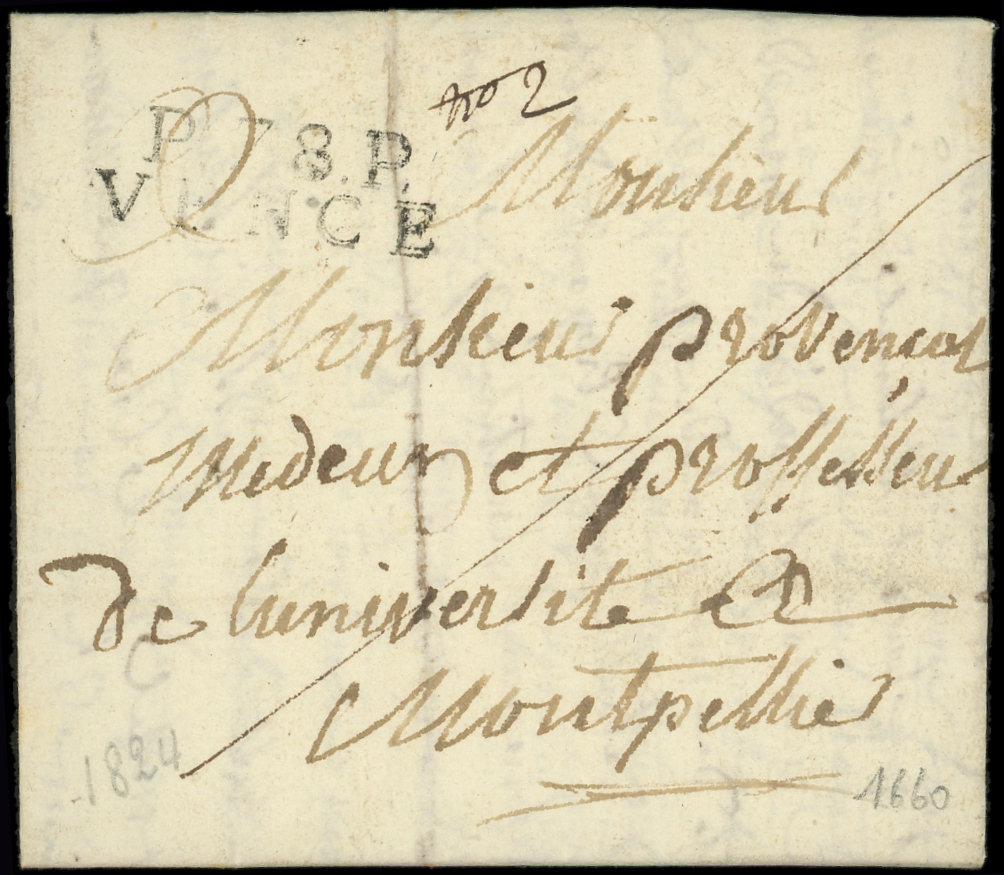 P. 78. P.
VENCE
no 2
Monsieur
Monsieur provençal
medeun et proffesseu
de luniversite &
Montpellier
1824
1660